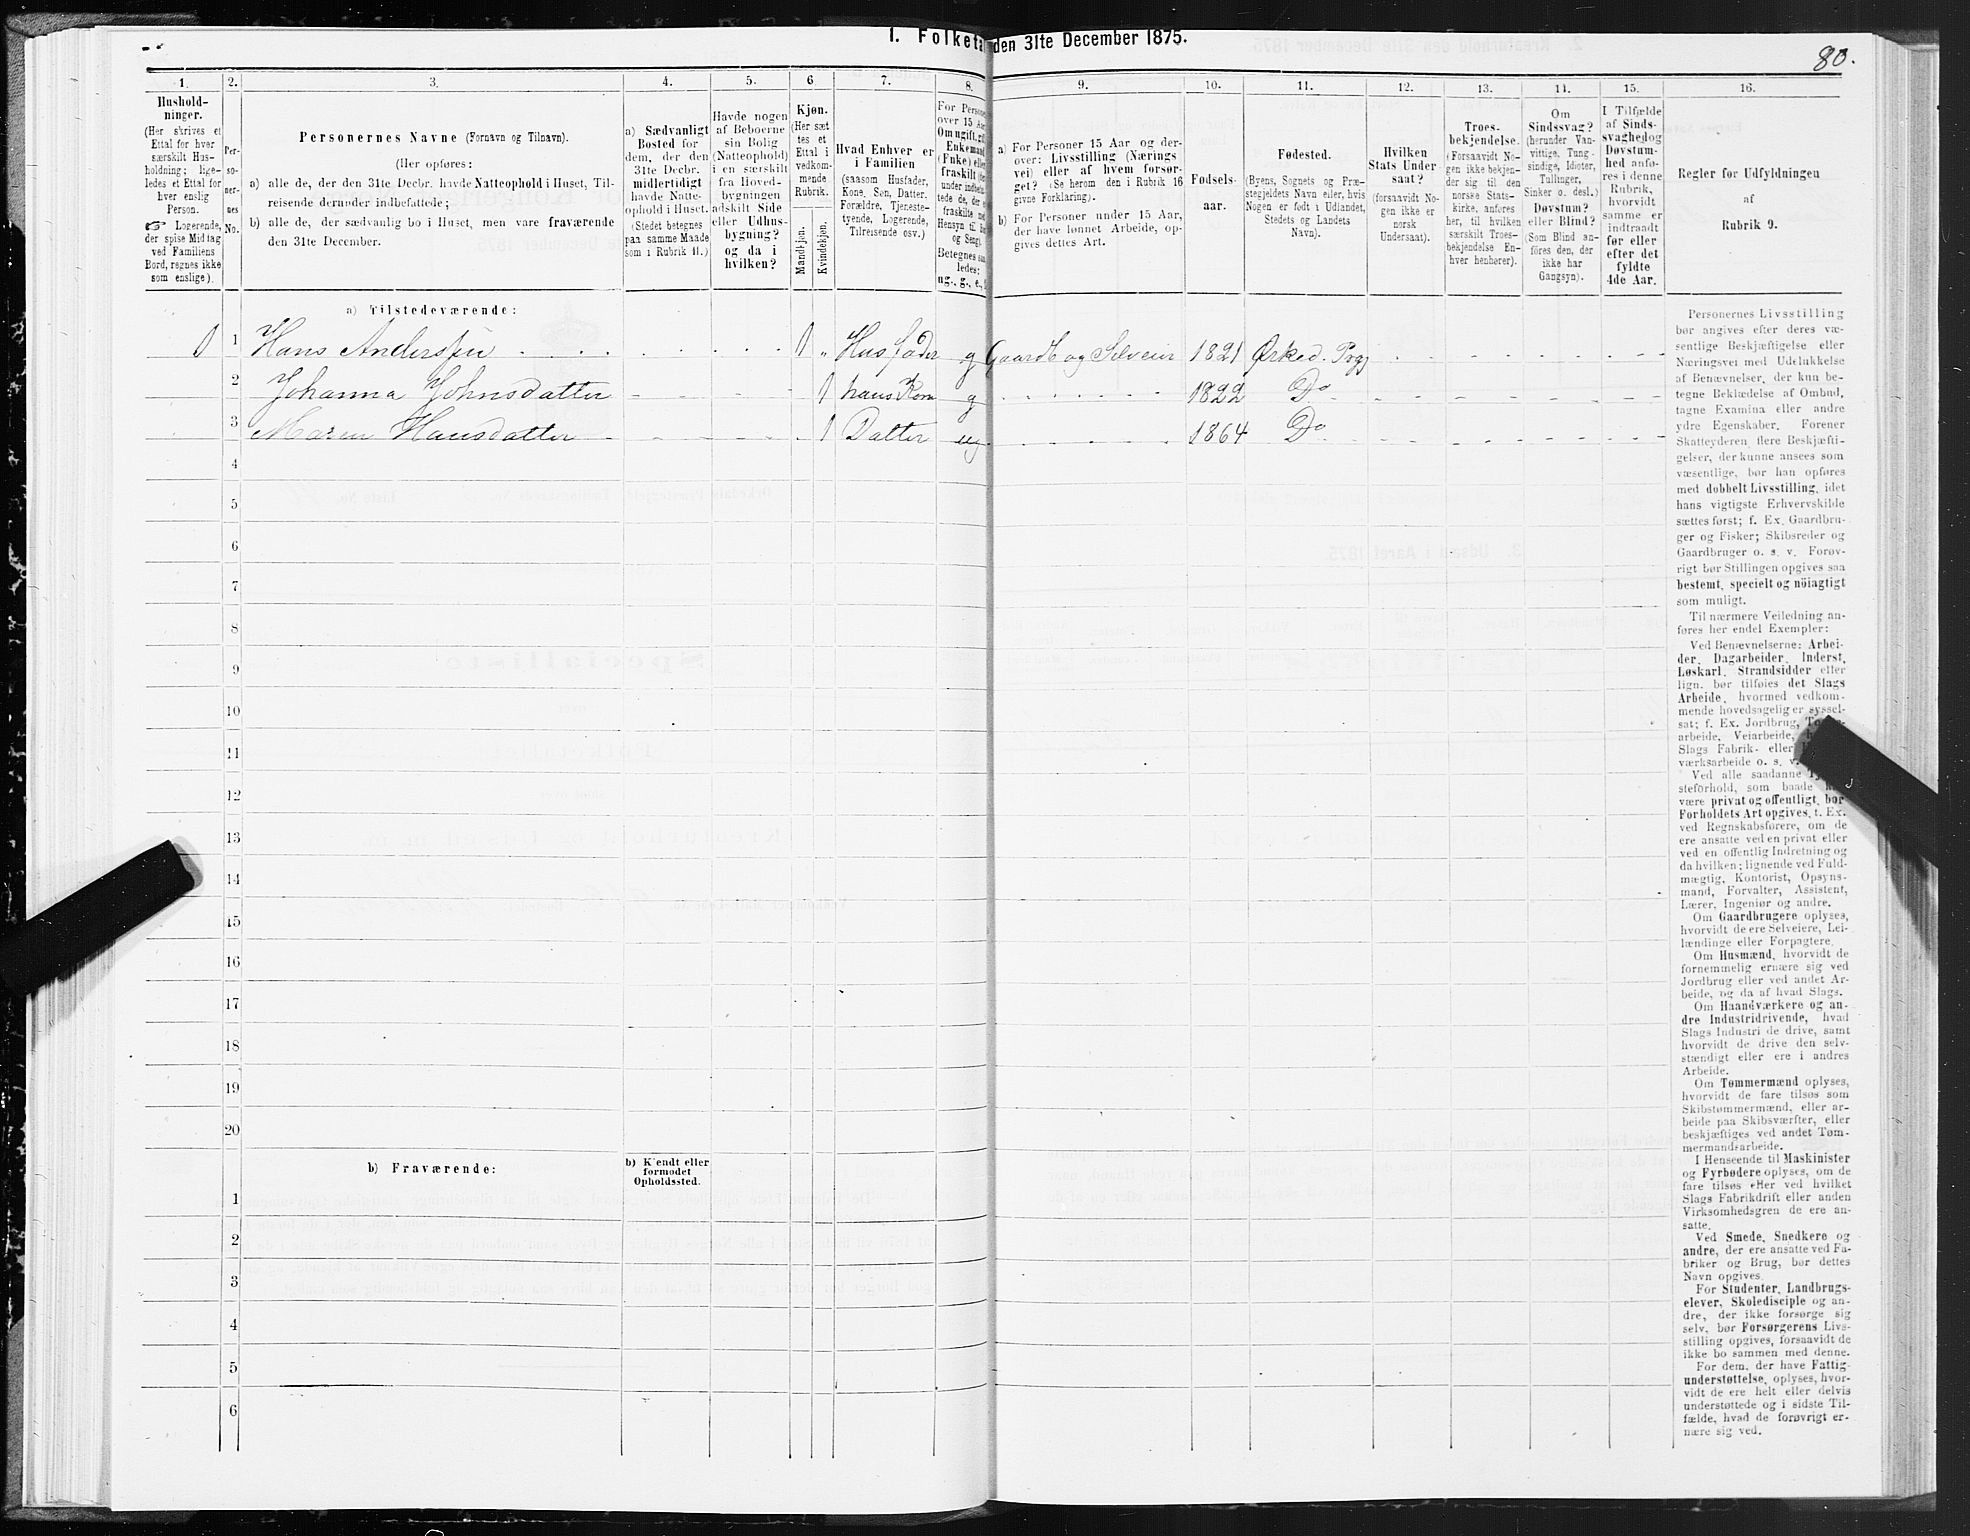 I. Folket den 31te December 1875.
80.
1.
Hushold-
ninger.
(Her skrives et
Ettal for hver
særskilt Hus-
holdning; lige-
ledes et Ettal for
hver enslig
Person.
☞ Logerende,
der spise Middag
ved Familiens
Bord, regnes ikke
som enslige.)
2.
Per-
so-
ner-
nes
No.
3.
Personernes Navne (Fornavn og Tilnavn).
(Her opføres:
a) alle de, der den 31te Decbr. havde Natteophold i Huset, Til-
reisende derunder indbefattede;
b) alle de, der sædvanlig bo i Huset, men vare fraværende
den 31te December.
4.
a) Sædvanligt
Bosted for
dem, der den
31te Decbr.
midlertidigt
havde Natte-
ophold i Huset.
(Stedet betegnes
paa samme Maade
som i Rubrik 11.)
5.
Havde nogen
af Beboerne
sin Bolig
(Natteophold)
i en særskilt
fra Hoved-
bygningen
adskilt Side
eller Udhus-
bygning?
og da i
hvilken?
6
Kjøn.
(Her sæt
tes et
Ettal i
vedkom-
mende
Rubrik.
Mandkjøn.
Kvindekjøn.
7.
Hvad Enhver er
i Familien
(saasom Husfader,
Kone, Søn, Datter,
Forældre, Tjeneste-
tyende, Logerende,
Tilreisende osv.)
8.
For Persone
over 15 Aa
Om ugift, gif
Enkemand
(Enke) elle
fraskilt
under indbefat
tede de, der e
fraskilte
Hensyn til
og Seng).
Betegnes saa
ledes:
ug., g., e.,
9.
a) For Personer 15 Aar og der-
over: Livsstilling (Nærings
vei) eller af hvem forsør-
get? (Se herom den i Rubrik 16
givne Forklaring).
b) For Personer under 15 Aar,
der have lønnet Arbeide, op-
gives dettes Art.
10.
Fødsels-
aar.
11.
Fødested.
(Byens, Sognets og Præ-
stegjeldets Navn eller, hvis
Nogen er født i Udlandet,
Stedets og Landets
Navn).
12.
Hvilken
Stats Under
saat?
(forsaavidt No-
gen ikke er
norsk
Undersaat).
13.
Troes-
bekjendelse.
(Forsaavidt No-
gen ikke bekjen-
der sig til den
norske Stats-
kirke, anføres
her, til hvilken
særskilt Troes-
bekjendelse En-
hver henhører).
14.
Om
Sindssvag?
(herunder Van-
vittige, Tung-
sindige, Idioter,
Tullinger,
Sinker o. desl.)
Døvstum?
eller Blind?
(Som Blind an-
føres den, der
ikke har
Gangsyn).
15.
I Tilfælde
af Sinds-
svaghed og
Døvstum-
hed anfø-
res i denne
Rubrik,
hvorvidt
samme er
indtraadt
før eller
efter det
fyldte
4de Aar.
16.
Regler for Udfyldningen
af
Rubrik 9.
a) Tilstedeværende:
1 1 Hans Andersen 1 „ Husfader g Gaardb og Selveier 1821 Ørked. Prgj
2 Johanna Johnsdatter 1 hans Kone g 1822 Do
3 Maren Hansdatter 1 Datter ug 1864 Do
4
5
6
7
8
9
10
11
12
13
14
15
16
17
18
19
20
b) Fraværende:
b) Kjendt eller
formodet
Opholdssted.
1
2
3
4
5
6
Personernes Livsstilling
bør angives efter deres væ-
sentlige Beskjæftigelse eller
Næringsvei med Udelukkelse
af Benævnelser, der kun be-
tegne Beklædelse af Ombud,
tagne Examina eller andre
ydre Egenskaber. Forener
Skatteyderen flere Beskjæfti-
gelser, der kunne ansees som
væsentlige, bør han opføres
med dobbelt Livsstilling, idet
hans vigtigste Erhvervskilde
sættes først; f. Ex. Gaardbru-
ger og Fisker; Skibsreder og
Gaardbruger o. s. v. Forøv-
rigt bør Stillingen opgives saa
bestemt, specielt og nöiagtigt
som muligt.
Til nærmere Veiledning an-
føres her endel Exempler:
Ved Benævnelserne: Arbei-
der, Dagarbeider, Inderst,
Løskarl, Strandsidder eller
lign. bør tilføies det Slags
Arbeide, hvormed vedkom-
mende hovedsagelig er syssel-
sat; f. Ex. Jordbrug,
arbeide, Veiarbeide,
Slags Fabrik- eller
værksarbeide o. s. v.
Ved alle saadanne
steforhold, som baade
være privat og offentligt, bør
Forholdets Art opgives, f. Ex.
ved Regnskabsførere, om de
ere ansatte ved en privat eller
ved en offentlig Indretning og
da hvilken; lignende ved Fuld-
mægtig, Kontorist, Opsyns-
mand, Forvalter, Assistent,
Lærer, Ingeniør og andre.
Om Gaardbrugere oplyses,
hvorvidt de ere Selveiere, Lei-
lændinge eller Forpagtere.
Om Husmænd, hvorvidt de
fornemmelig ernære sig ved
Jordbrug eller ved andet Ar-
beide, og da af hvad Slags.
Om Haandværkere og an-
dre Industridrivende, hvad
Slags Industri de drive, samt
hvorvidt de drive den selv-
stændigt eller ere i andres
Arbeide.
Om Tømmermænd oplyses,
hvorvidt de fare tilsøs som
Skibstømmermænd, eller ar-
beide paa Skibsværfter, eller
beskjæftiges ved andet Tøm-
mermandsarbeide.
I Henseende til Maskinister
og Fyrbødere oplyses, om de
fare tilsøs eller ved hvilket
Slags Fabrikdrift eller anden
Virksomhedsgren de ere an-
satte.
Ved Smede, Snedkere og
andre, der ere ansatte ved Fa-
briker og Brug, bør dettes
Navn opgives.
For Studenter, Landbrugs-
elever, Skoledisciple og an-
dre, der ikke forsørge sig
selv, bør Forsørgerens Livs-
stilling opgives, forsaavidt de
ikke bo sammen med denne.
For dem, der have Fattig-
understøttelse, oplyses, hvor-
vidt de ere helt eller delvis
understøttede og i sidste Til-
fælde, hvad de forøvrigt er-
nære sig ved.